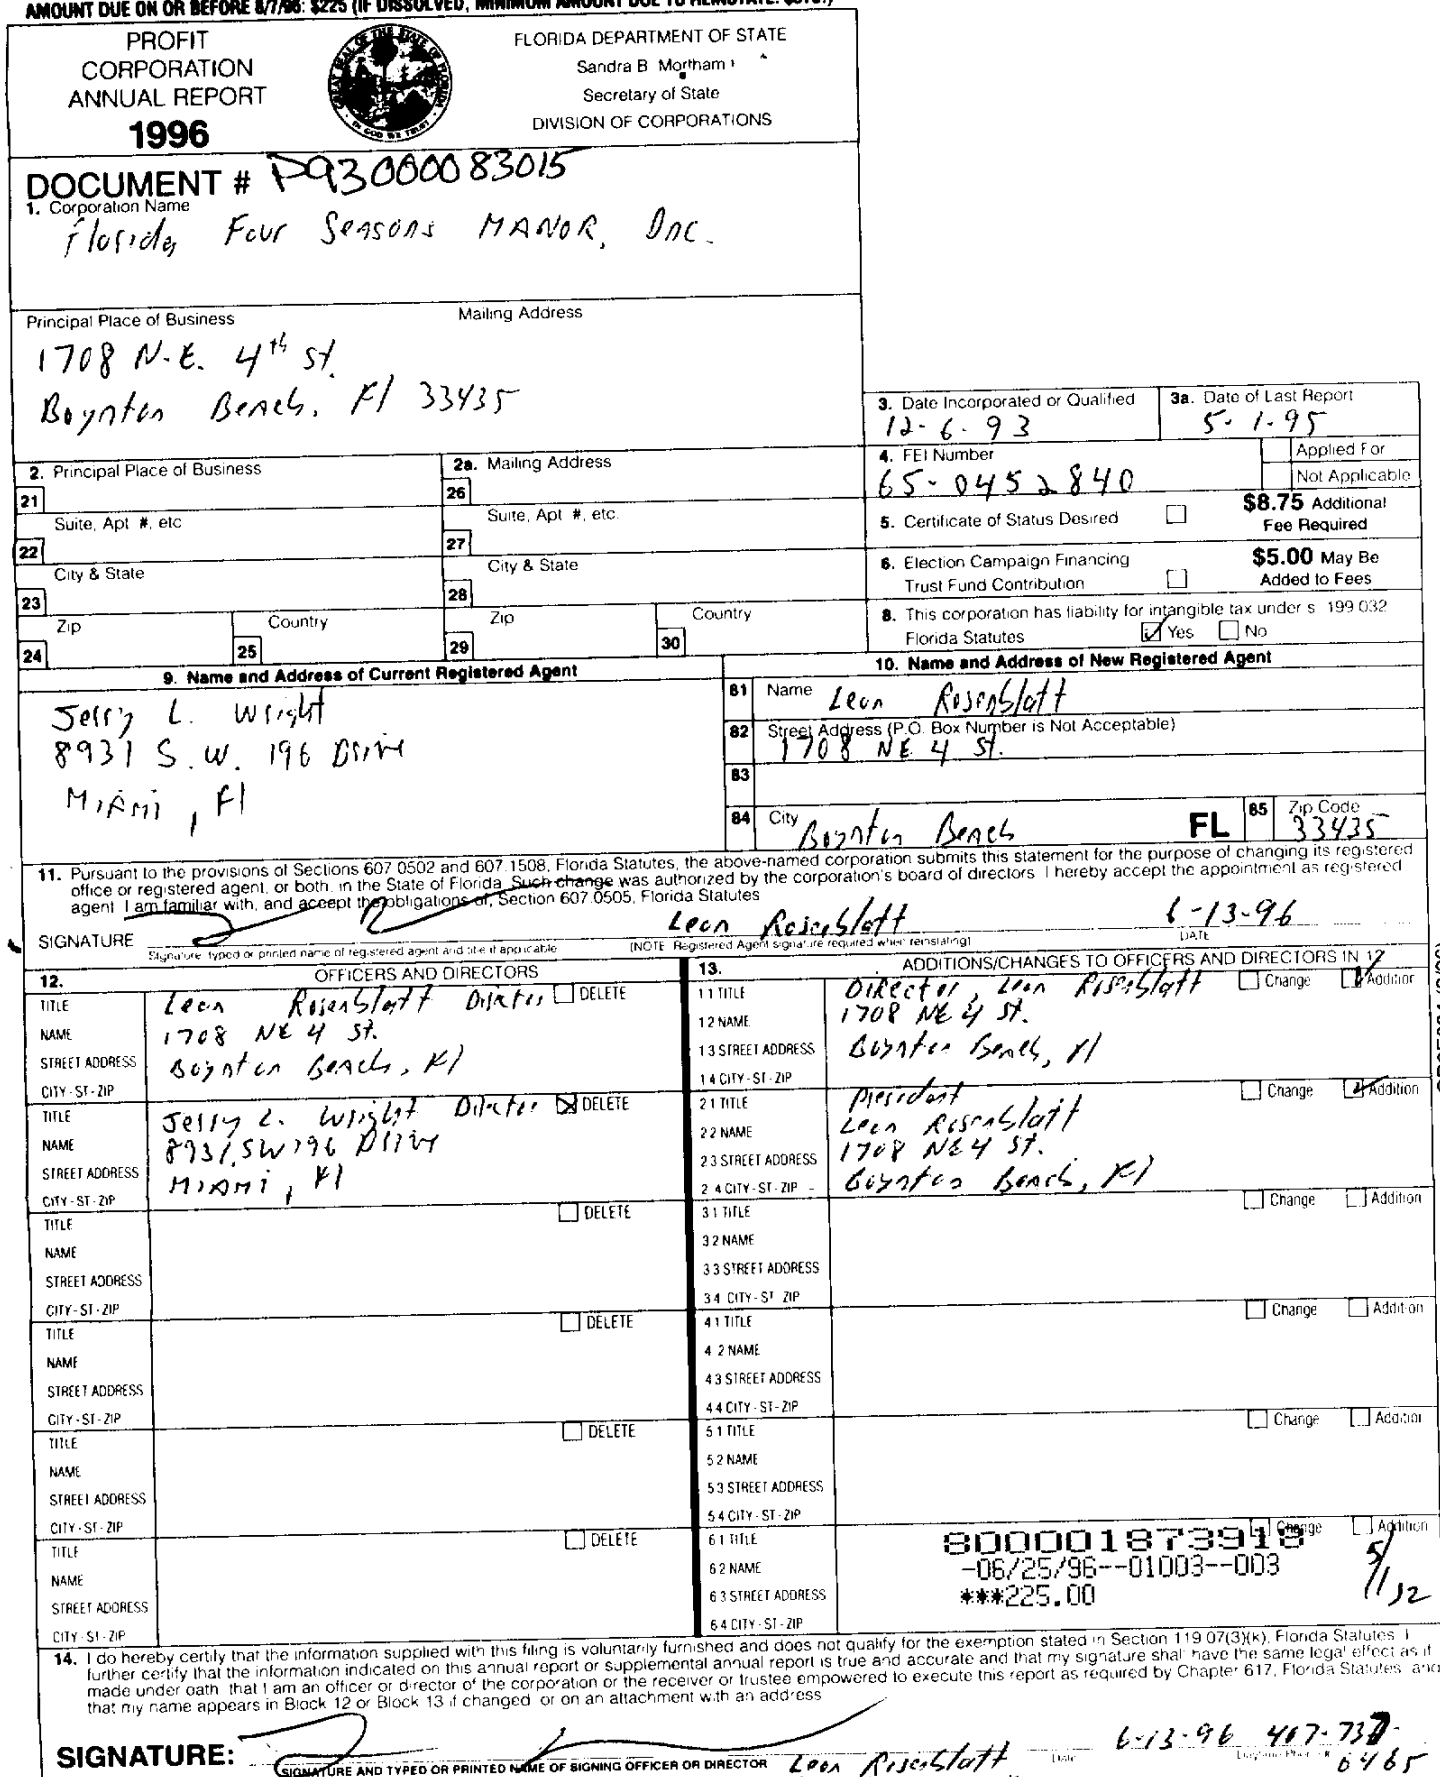 AMOUNT DUE ON OR BEFORE 8/7/96: $225 (IF DISSOLVED, MINIMUM AMOUNT DUE TO REINSTATE:
PROFIT
CORPORATION
ANNUAL REPORT
1996
FLORIDA DEPARTMENT OF STATE
Sandra B Mortham
Secretary of State
DIVISION OF CORPORATIONS
GREAT SEAL OF THE STATE OF FLORIDA
IN GOD WE TRUST
DOCUMENT # P93000083015
1. Corporation Name
Florida Four Seasons MANOR, Inc.
Principal Place of Business Mailing Address
1708 N.E. 4th St.
Boynton Beach, Fl 33435
3. Date Incorporated or Qualified 3a. Date of Last Report
12-6-93 5-1-95
4. FEI Number Applied For
65-0452840 Not Applicable
5. Certificate of Status Desired $8.75 Additional
Fee Required
6. Election Campaign Financing $5.00 May Be
Trust Fund Contribution Added to Fees
8. This corporation has liability for intangible tax under s 199 032
Florida Statutes Yes No
2. Principal Place of Business 2a. Mailing Address
21 26
Suite, Apt #, etc Suite, Apt #, etc.
22 27
City & State City & State
23 28
Zip Country Zip Country
24 25 29 30
9. Name and Address of Current Registered Agent
Jerry L. Wright
8931 S.W. 196 Drive
Miami, Fl
10. Name and Address of New Registered Agent
81 Name Leon Rosenblatt
82 Street Address (P.O. Box Number is Not Acceptable)
1708 NE 4 St.
83
84 City Boynton Beach FL 85 Zip Code 33435
11. Pursuant to the provisions of Sections 607 0502 and 607 1508, Florida Statutes, the above-named corporation submits this statement for the purpose of changing its registered
office or registered agent, or both, in the State of Florida Such change was authorized by the corporation's board of directors I hereby accept the appointment as registered
agent I am familiar with, and accept the obligations of, Section 607 0505, Florida Statutes
SIGNATURE Leon Rosenblatt 6-13-96
Signature, typed or printed name of registered agent and title if applicable (NOTE Registered Agent signature required when reinstating) DATE
12. OFFICERS AND DIRECTORS
TITLE Leon Rosenblatt Director DELETE
NAME 1708 NE 4 St.
STREET ADDRESS Boynton Beach, Fl
CITY-ST-ZIP
TITLE Jerry L. Wright Director DELETE
NAME 8931 SW 196 Drive
STREET ADDRESS Miami, Fl
CITY-ST-ZIP
TITLE DELETE
NAME
STREET ADDRESS
CITY-ST-ZIP
TITLE DELETE
NAME
STREET ADDRESS
CITY-ST-ZIP
TITLE DELETE
NAME
STREET ADDRESS
CITY-ST-ZIP
TITLE DELETE
NAME
STREET ADDRESS
CITY-ST-ZIP
13. ADDITIONS/CHANGES TO OFFICERS AND DIRECTORS IN 12
1 1 TITLE Director, Leon Rosenblatt Change Addition
1 2 NAME 1708 NE 4 St.
1 3 STREET ADDRESS Boynton Beach, Fl
1 4 CITY-ST-ZIP
2 1 TITLE President Change Addition
2 2 NAME Leon Rosenblatt
2 3 STREET ADDRESS 1708 NE 4 St.
2 4 CITY-ST-ZIP Boynton Beach, Fl
3 1 TITLE Change Addition
3 2 NAME
3 3 STREET ADDRESS
3 4 CITY-ST ZIP
4 1 TITLE Change Addition
4 2 NAME
4 3 STREET ADDRESS
4 4 CITY-ST-ZIP
5 1 TITLE Change Addition
5 2 NAME
5 3 STREET ADDRESS
5 4 CITY-ST-ZIP
6 1 TITLE Change Addition
6 2 NAME
6 3 STREET ADDRESS
6 4 CITY-ST-ZIP
800001873918
-06/25/96--01003--003
***225.00
14. I do hereby certify that the information supplied with this filing is voluntarily furnished and does not qualify for the exemption stated in Section 119 07(3)(k), Florida Statutes I
further certify that the information indicated on this annual report or supplemental annual report is true and accurate and that my signature shall have the same legal effect as if
made under oath that I am an officer or director of the corporation or the receiver or trustee empowered to execute this report as required by Chapter 617, Florida Statutes and
that my name appears in Block 12 or Block 13 if changed or on an attachment with an address
SIGNATURE: 6-13-96 407-737-
SIGNATURE AND TYPED OR PRINTED NAME OF SIGNING OFFICER OR DIRECTOR Leon Rosenblatt Date Daytime Phone # 6465